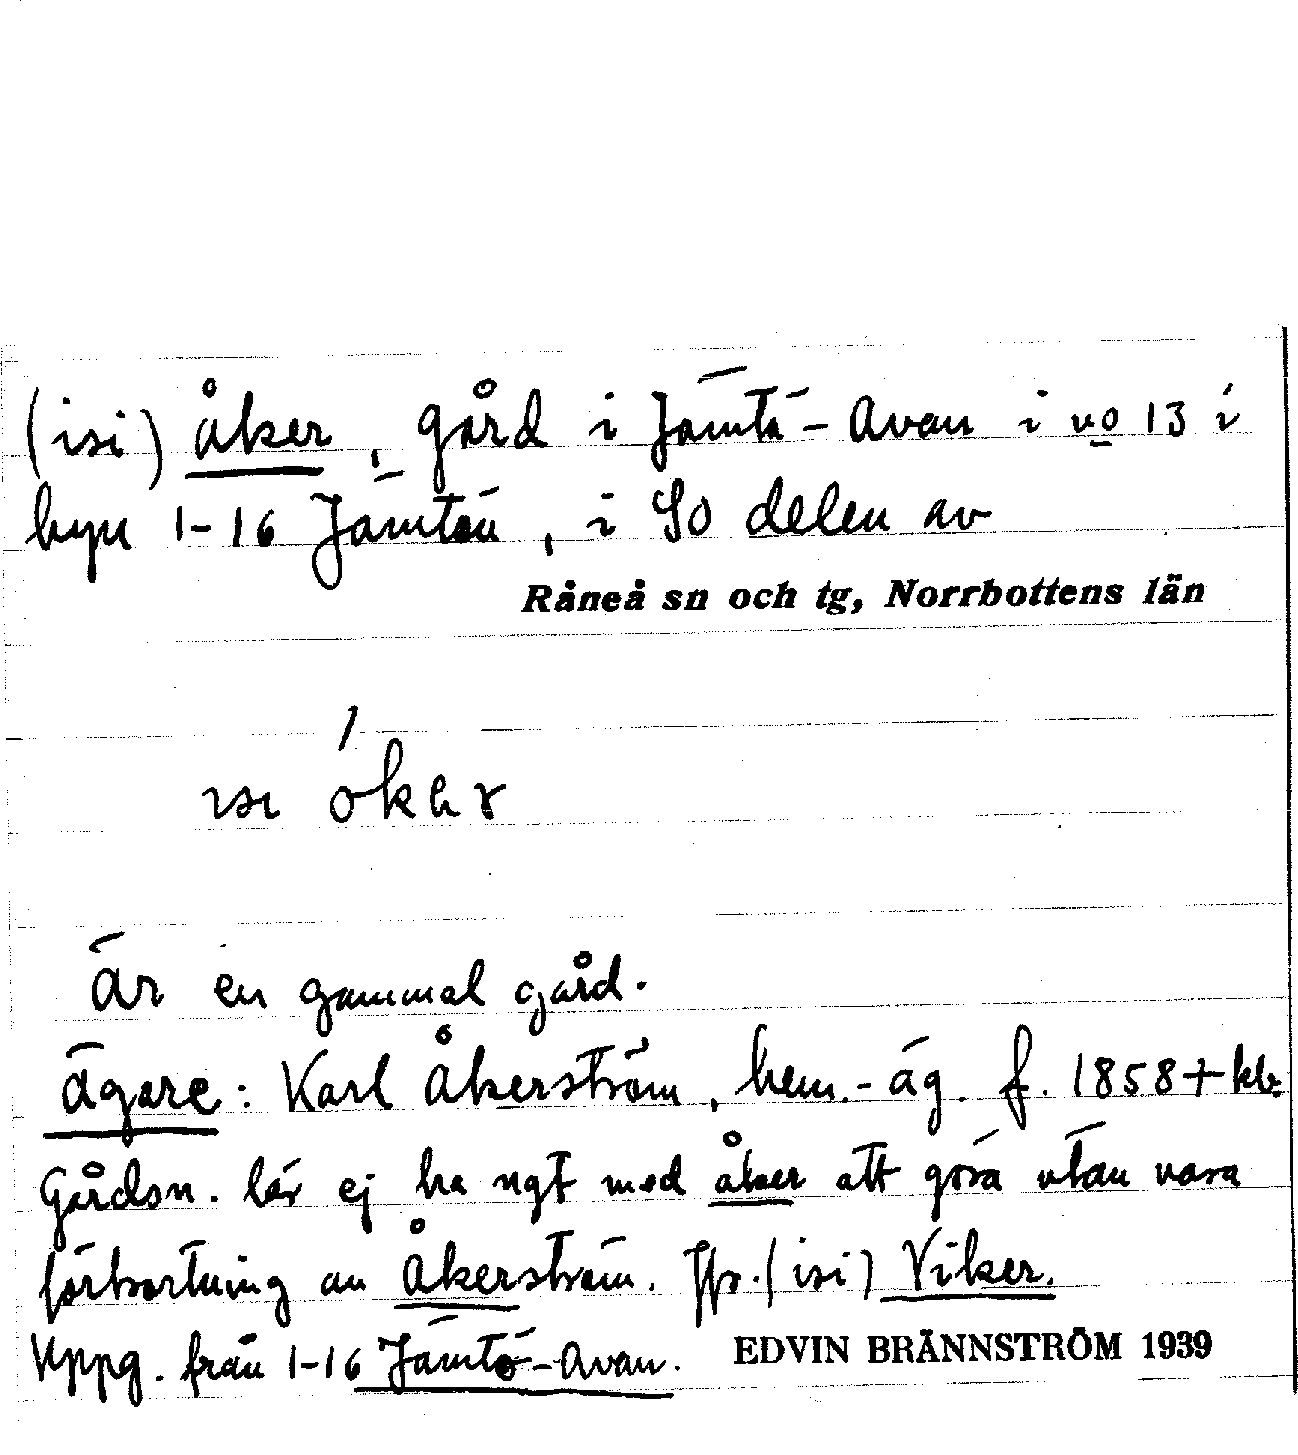 (isi) åker, gård i Jämtö-Avan i no 13 i
byn 1-16 Jämtön, i SO delen av
Råneå sn och tg, Norrbottens län
ısı
Är en gammal gård.
Ägare: Karl Åkerström, hem.-äg. f. 1858 +
Gårdsn. lär ej ha ngt med åker att göra utan vara
förkortning av Åkerström. Jfr. (isi) Viker.
Uppg. från 1-16 Jämtö-Avan.
EDVIN BRÄNNSTRÖM 1939